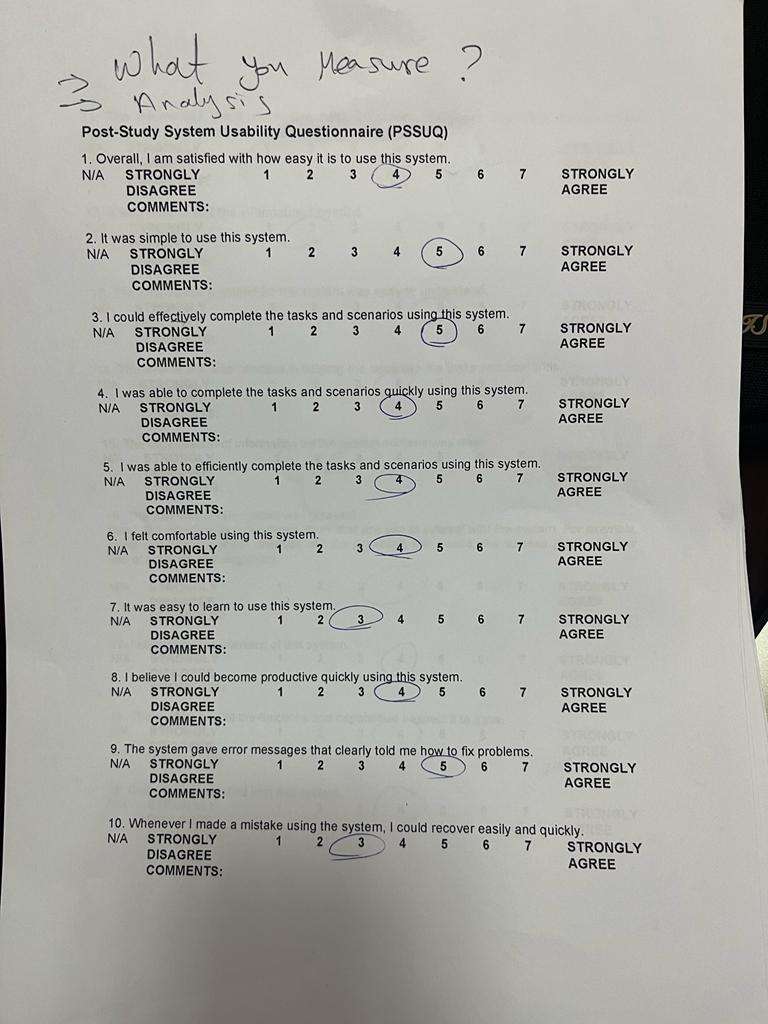 What you Measure ?
Analysis
Post-Study System Usability Questionnaire (PSSUQ)
1. Overall, I am satisfied with how easy it is to use this system.
N/A STRONGLY 1 2 3 4 5 6 7 STRONGLY
DISAGREE AGREE
COMMENTS:
2. It was simple to use this system.
N/A STRONGLY 1 2 3 4 5 6 7 STRONGLY
DISAGREE AGREE
COMMENTS:
3. I could effectively complete the tasks and scenarios using this system.
N/A STRONGLY 1 2 3 4 5 6 7 STRONGLY
DISAGREE AGREE
COMMENTS:
4. I was able to complete the tasks and scenarios quickly using this system.
N/A STRONGLY 1 2 3 4 5 6 7 STRONGLY
DISAGREE AGREE
COMMENTS:
5. I was able to efficiently complete the tasks and scenarios using this system.
N/A STRONGLY 1 2 3 4 5 6 7 STRONGLY
DISAGREE AGREE
COMMENTS:
6. I felt comfortable using this system.
N/A STRONGLY 1 2 3 4 5 6 7 STRONGLY
DISAGREE AGREE
COMMENTS:
7. It was easy to learn to use this system.
N/A STRONGLY 1 2 3 4 5 6 7 STRONGLY
DISAGREE AGREE
COMMENTS:
8. I believe I could become productive quickly using this system.
N/A STRONGLY 1 2 3 4 5 6 7 STRONGLY
DISAGREE AGREE
COMMENTS:
9. The system gave error messages that clearly told me how to fix problems.
N/A STRONGLY 1 2 3 4 5 6 7 STRONGLY
DISAGREE AGREE
COMMENTS:
10. Whenever I made a mistake using the system, I could recover easily and quickly.
N/A STRONGLY 1 2 3 4 5 6 7 STRONGLY
DISAGREE AGREE
COMMENTS: